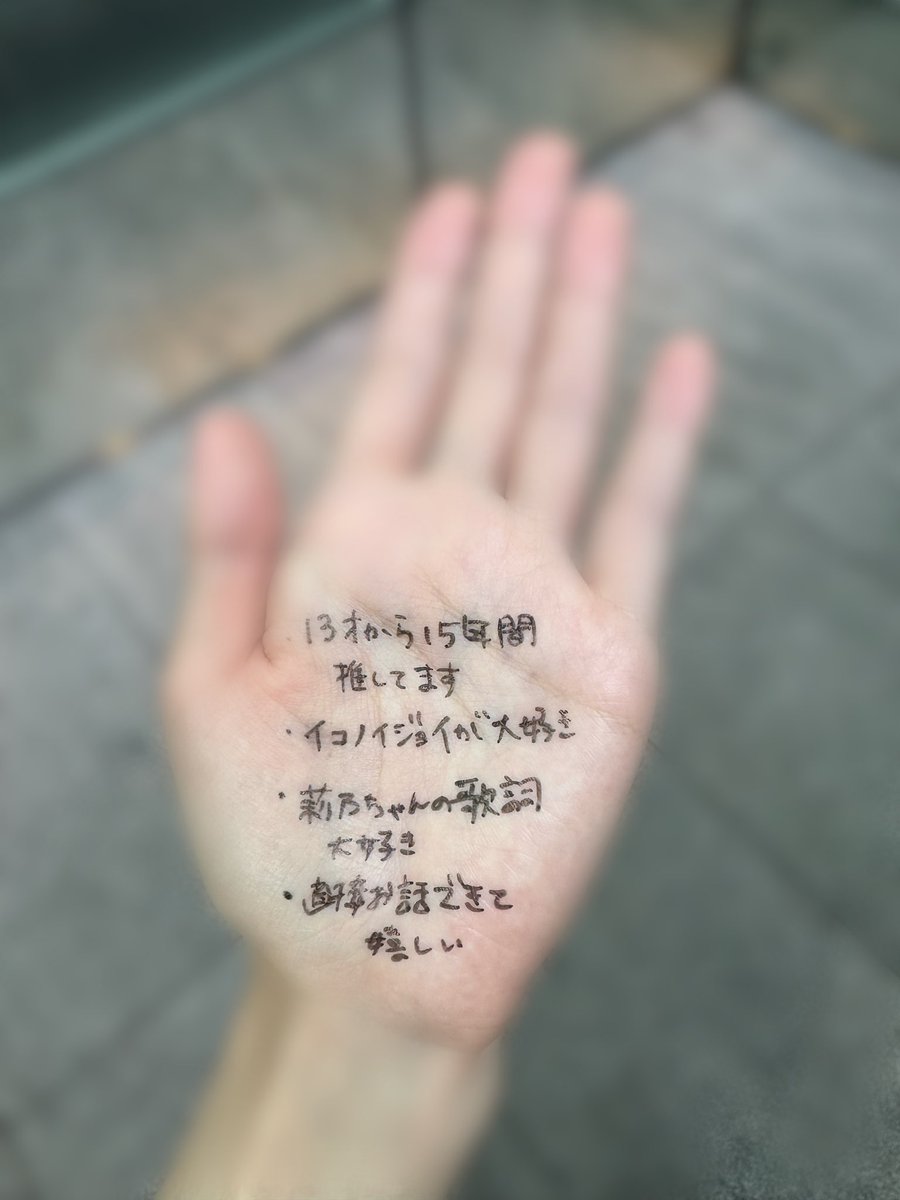 13才から15年間
推してます
・イコノイジョイが大好き
・莉乃ちゃんの歌詞
大好き
・直接お話できて
嬉しい